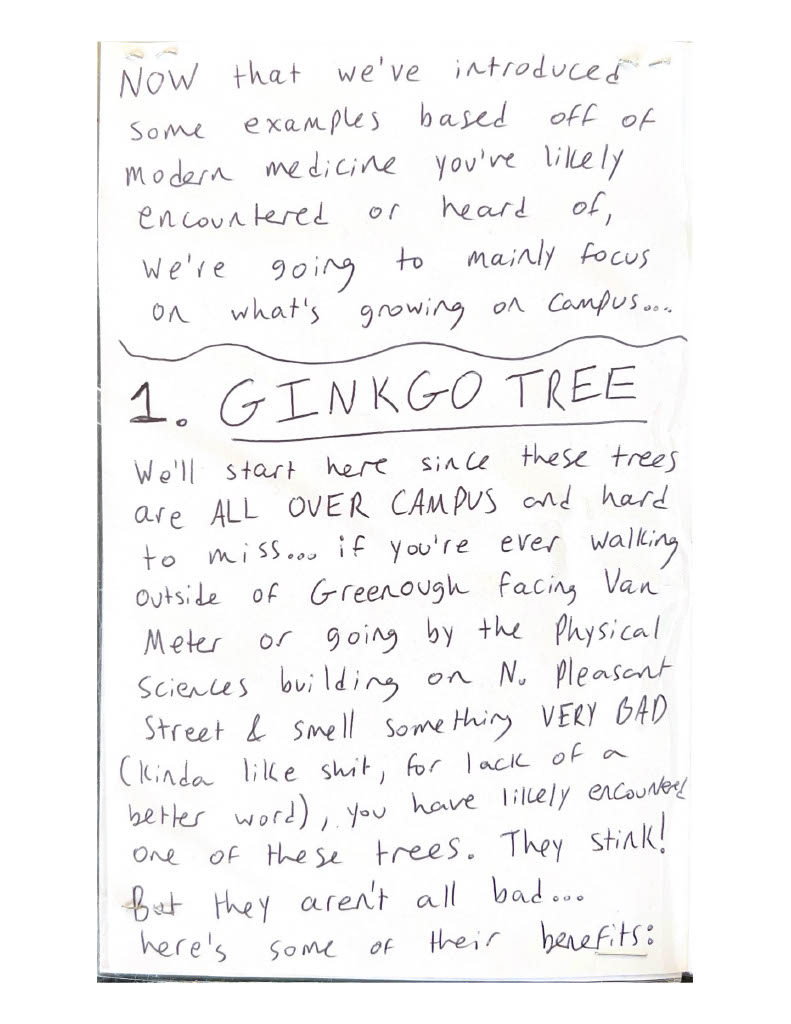 NOW that we've introduced
some examples based off of
modern medicine you've likely
encountered or heard of,
we're going to mainly focus
on what's growing on campus...
1. GINKGO TREE
We'll start here since these trees
are ALL OVER CAMPUS and hard
to miss... if you're ever walking
outside of Greenough facing Van
Meter or going by the Physical
Sciences building on N. Pleasant
Street & smell something VERY BAD
(kinda like shit, for lack of a
better word), you have likely encountered
one of these trees. They stink!
But they aren't all bad...
here's some of their benefits: